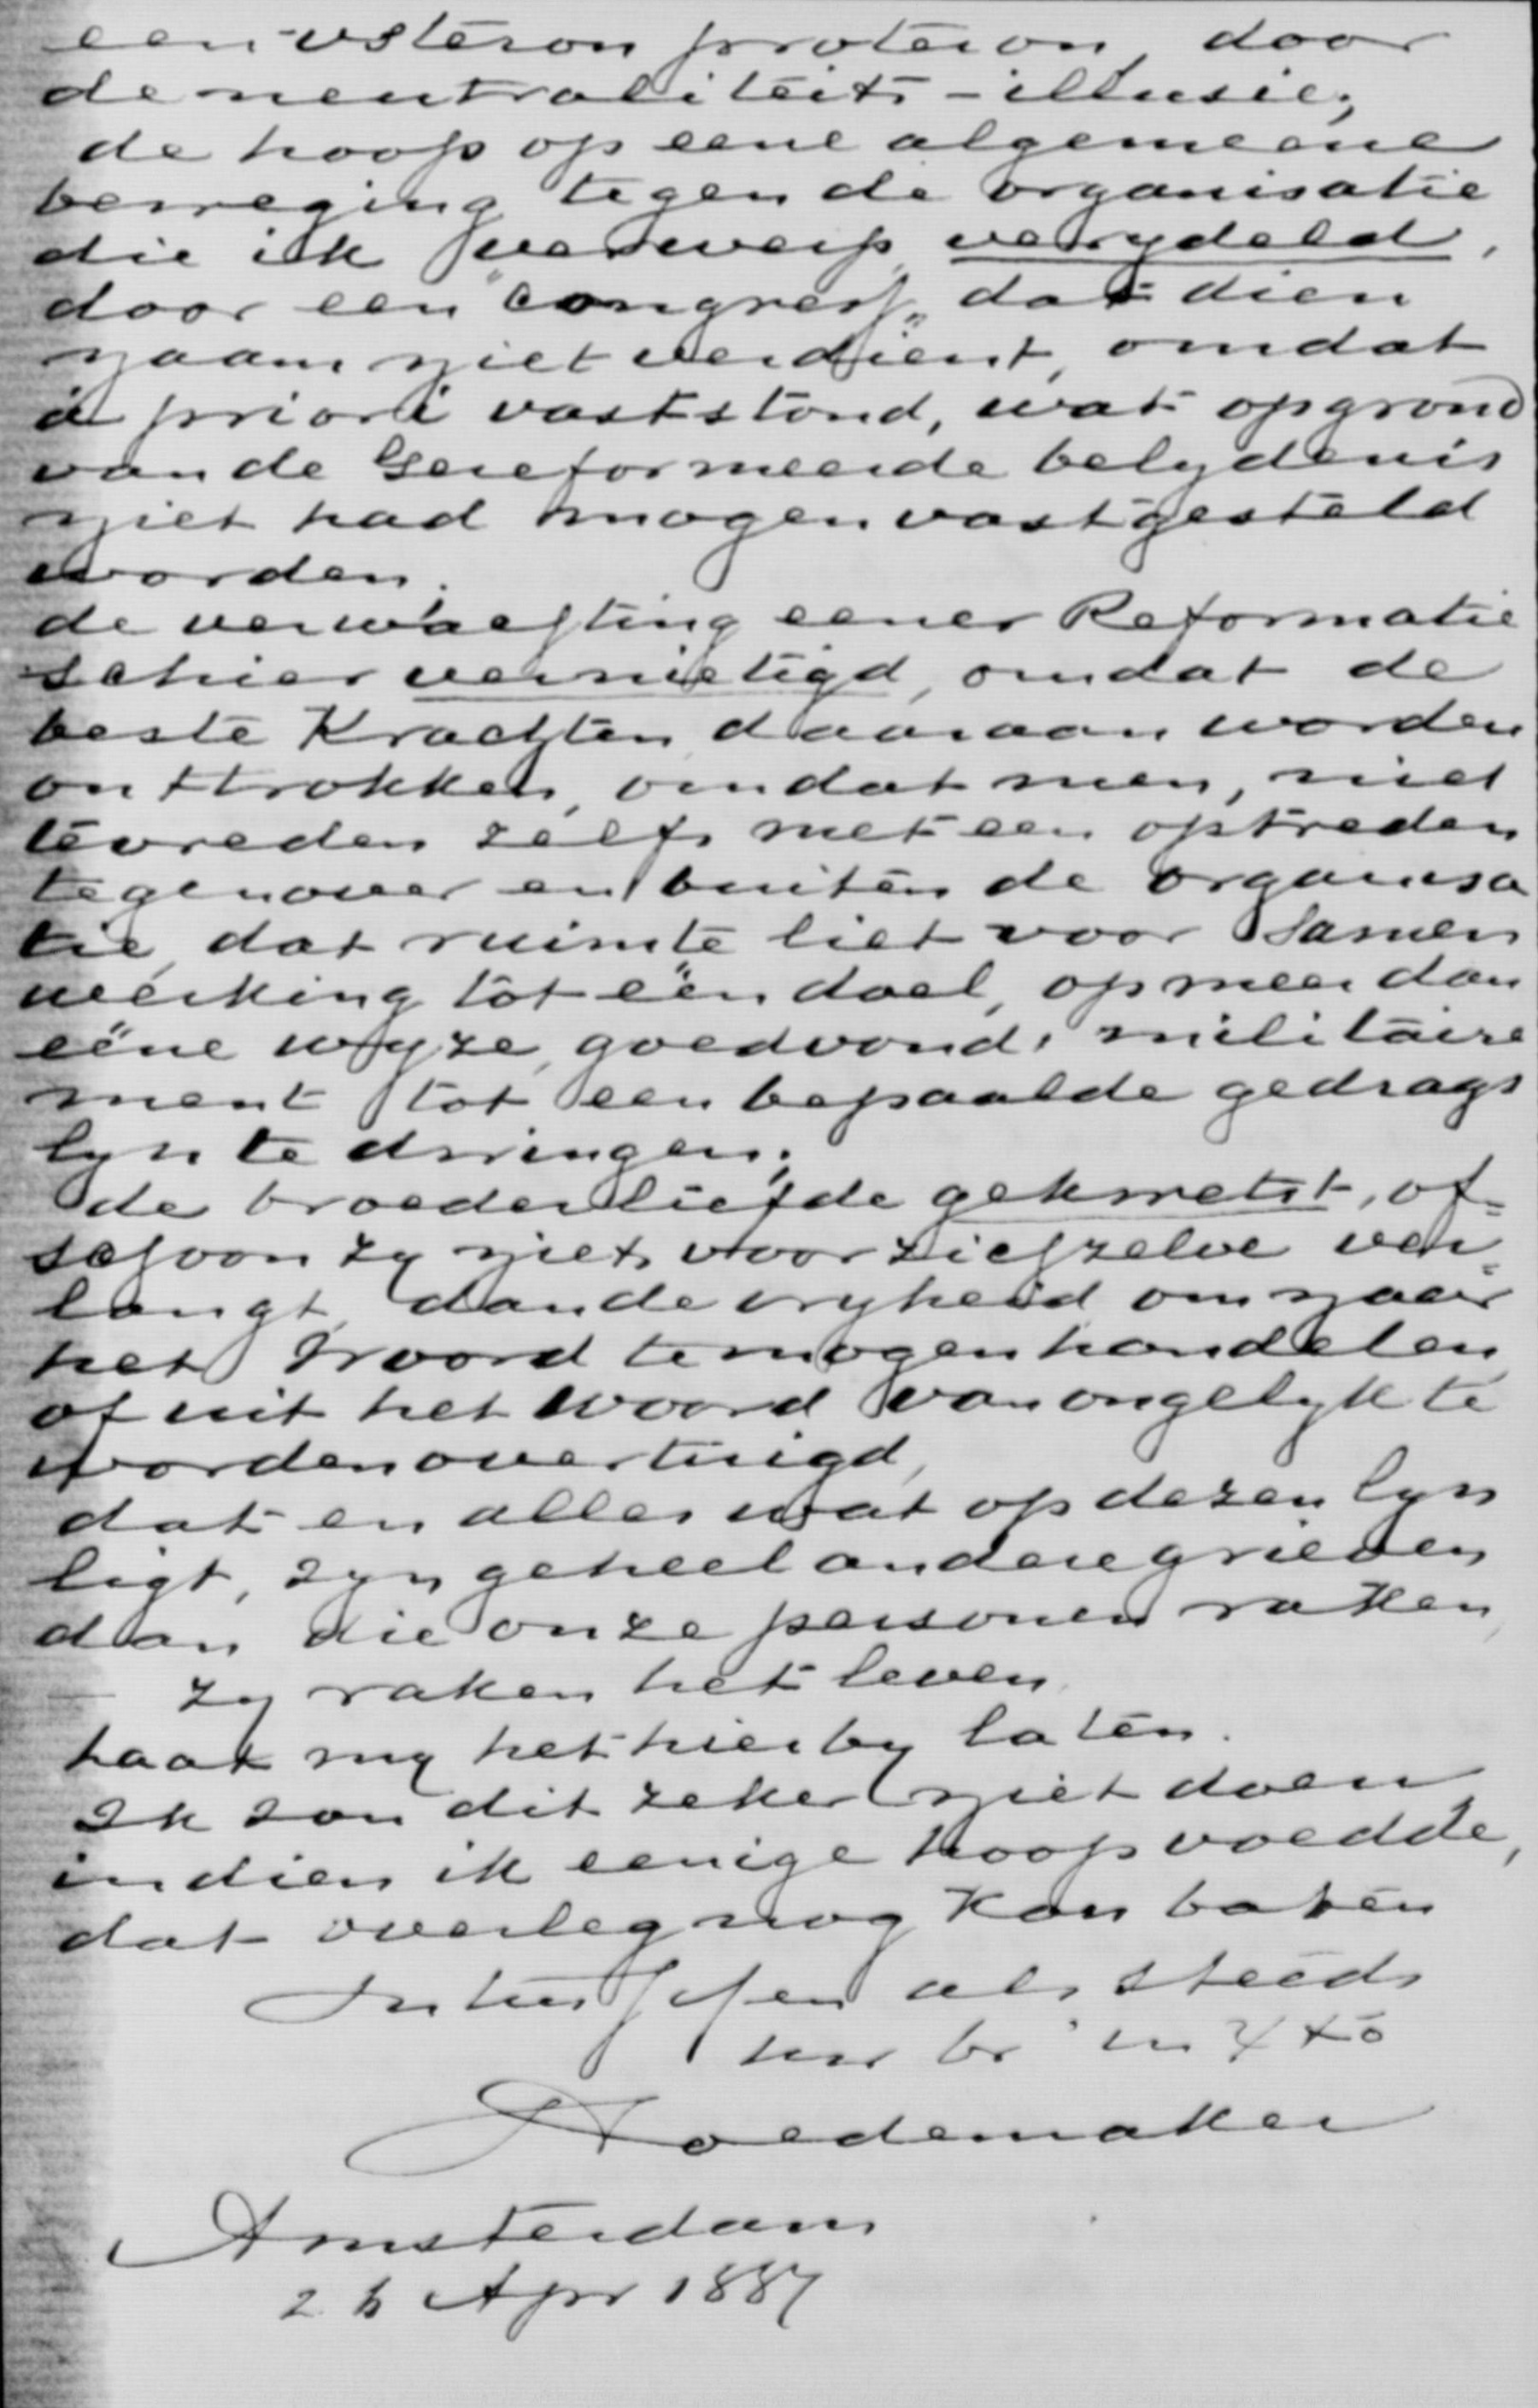 een usteron proteron, door
de neutraliteits-illusie;
de hoop op eene algemeene
beweging tegen de organisatie
die ik verwerp verydeld,
door een "Congres" dat dien
naam niet verdient, omdat
à priori vaststond, wat op grond
van de Gereformeerde belydenis
niet had mogen vastgesteld
worden.
de verwachting eener Reformatie
schier vernietigd, omdat de
beste Krachten daaraan worden
onttrokken, omdat men, niet
tevreden zelfs met een optreden
tegenover en buiten de organisa
tie, dat ruimte liet voor Samen
werking tot één doel, op meer dan
ééne wyze, goedvond, militaire
ment tot een bepaalde gedrags
lyn te dwingen;
de broederliefde gekwetst, of=
schoon zy niets voor zichzelve ver=
langt, dan de vryheid om naar
het Woord te mogen handelen
of uit het Woord van ongelyk te
worden overtuigd,
dat en alles wat op dezen lyn
ligt, zyn geheel andere grieven
dan die onze personen raken,
— zy raken het leven.
Laat my het hierby laten.
Ik zou dit zeker niet doen
indien ik eenige hoop voedde,
dat overleg nog Kon baten
Intusschen als steeds
br in
Hoedemaker
Amsterdam
Apr 1887